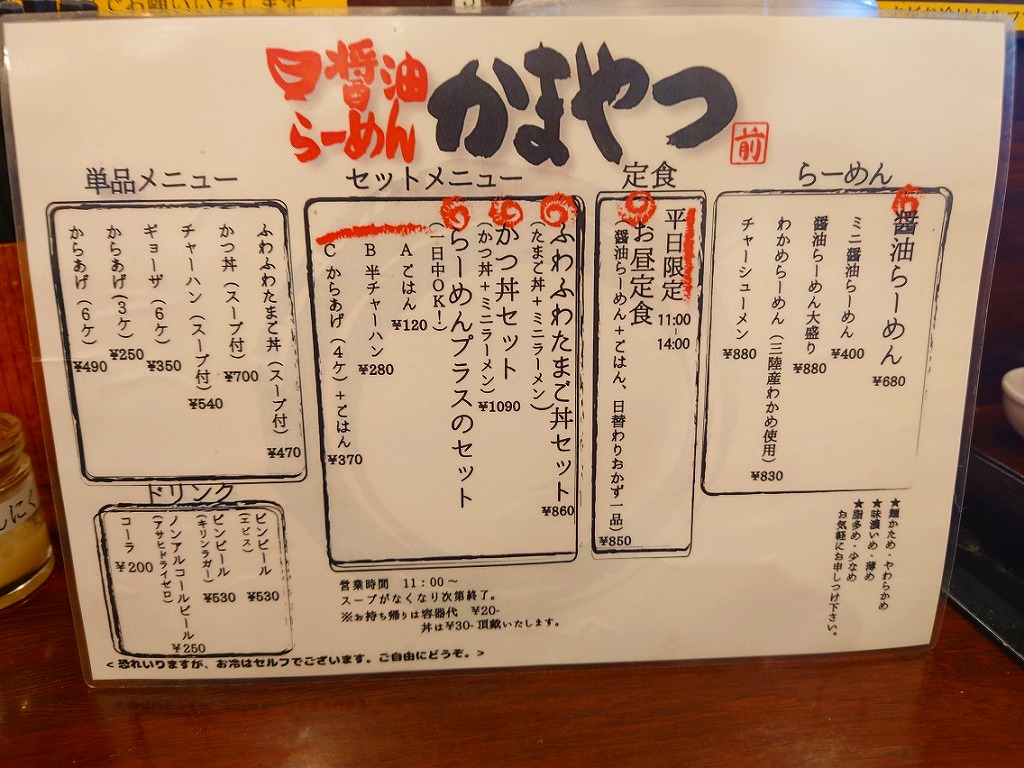 でお願いいたします
醤油
らーめん
かまやつ
前
らーめん
醤油らーめん
¥680
ミニ醤油らーめん
¥400
醤油らーめん大盛り
¥880
わかめらーめん（三陸産わかめ使用）
¥830
チャーシューメン
¥880
★麺かため・やわらかめ
★味濃いめ・薄め
★脂多め・少なめ
お気軽にお申しつけ下さい。
定食
平日限定
11:00
-
14:00
お昼定食
（醤油らーめん＋ごはん、日替わりおかず一品）
¥850
セットメニュー
ふわふわたまご丼セット
（たまご丼＋ミニラーメン）
¥860
かつ丼セット
（かつ丼＋ミニラーメン）
¥1090
らーめんプラスのセット
（一日中OK！）
A ごはん
¥120
B 半チャーハン
¥280
C からあげ（4ケ）＋ごはん
¥370
単品メニュー
ふわふわたまご丼（スープ付）
¥470
かつ丼（スープ付）
¥700
チャーハン（スープ付）
¥540
ギョーザ（6ケ）
¥350
からあげ（3ケ）
¥250
からあげ（6ケ）
¥490
ドリンク
ビンビール
（エビス）
¥530
ビンビール
（キリンラガー）
¥530
ノンアルコールビール
（アサヒドライゼロ）
¥250
コーラ
¥200
営業時間　11：00～
スープがなくなり次第終了。
※お持ち帰りは容器代　¥20-
丼は¥30-頂戴いたします。
＜恐れいりますが、お冷はセルフでございます。ご自由にどうぞ。＞
んにく